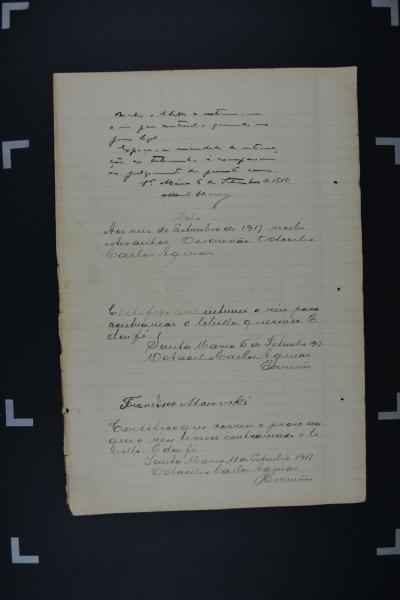 Recebo o libello e
o réo para contrarial-o querendo no
prazo legal.
Expeça-se mandado de intima-
ção as testemunhas á comparecerem
ao julgamento da presente causa.
Sta Maria 6 de Setembro de 1917.
Data
Aos seis de Setembro de 1917 recebi
estes autos. O escrivão, Octacilio
Carlos Aguiar
Certifico que intimei o réu para
contrariar o libello querendo. E
dou fé.
Santa Maria 6 de Setembro 917
Octacilio Carlos Aguiar
Escrivão
Francisco Macovski
Certifico que correu o praso sem
que o réu tivesse contrariado o li-
bello. E dou fé.
Santa Maria 11 de Setembro 1917
Octacilio Carlos Aguiar
Escrivão